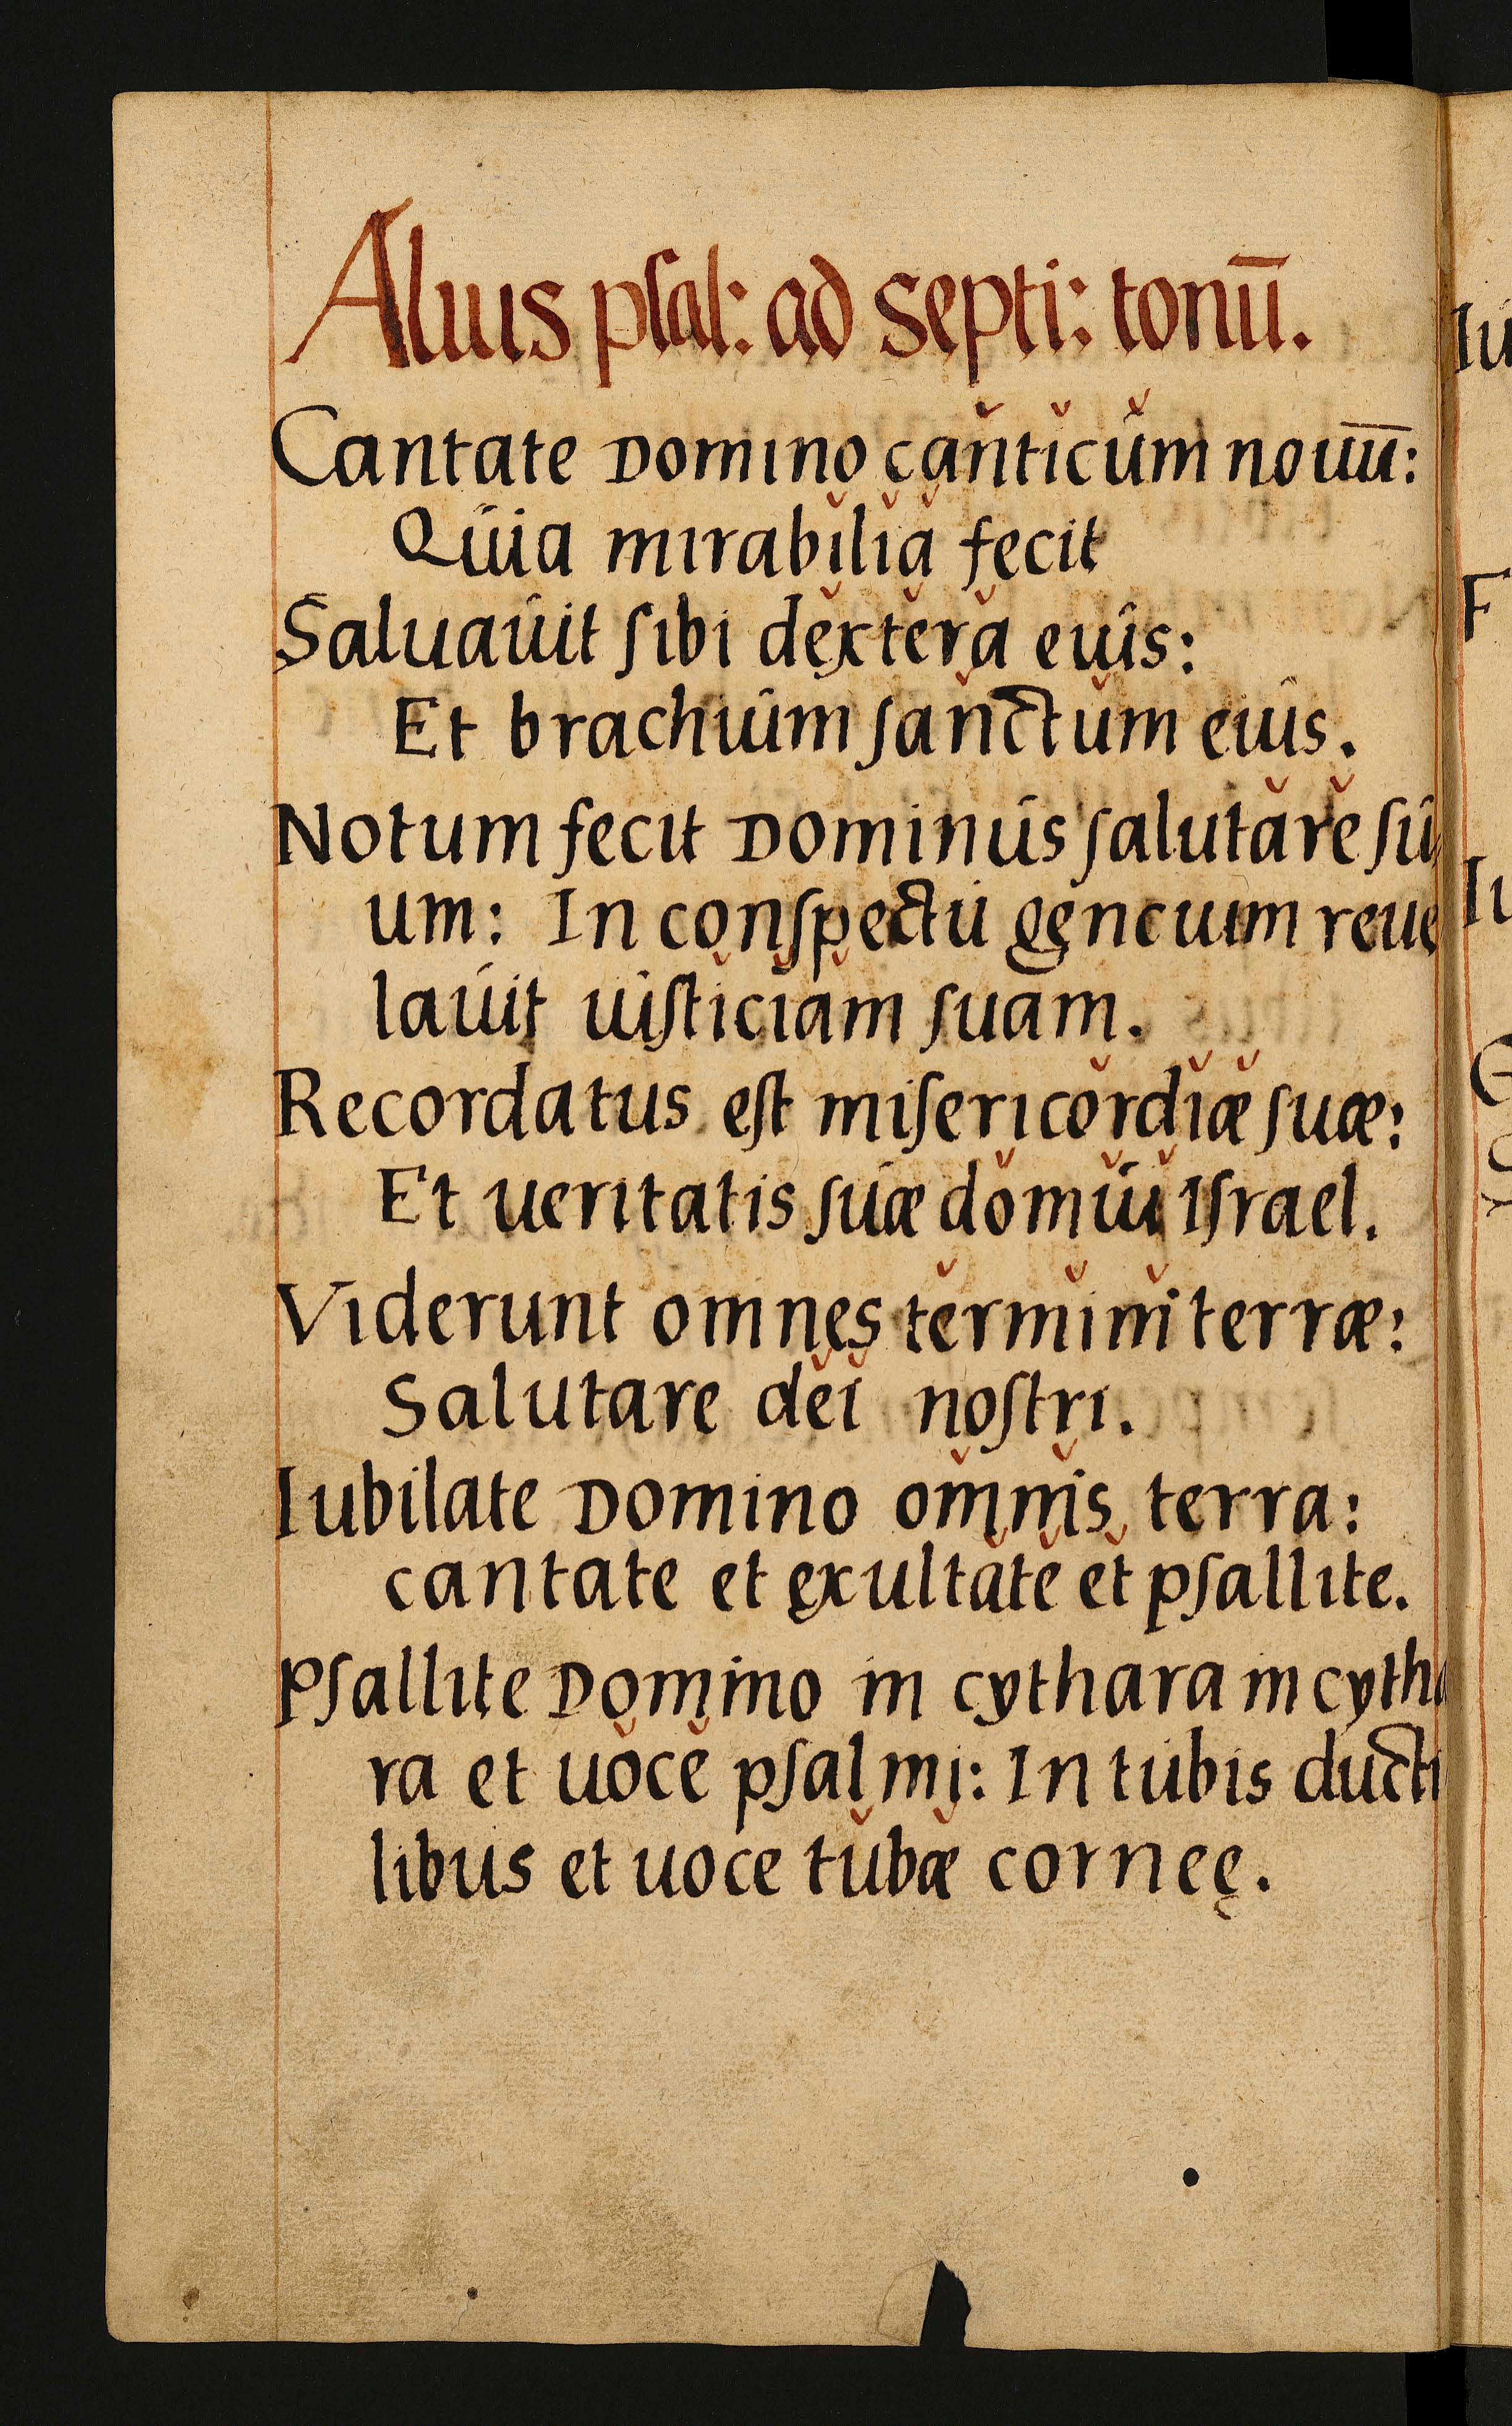 Alius psal: ad septi: tonū.
Cantate Domino canticum nouū:
Quia mirabilia fecit
Saluauit sibi dextera euis:
Et brachium sanctum eius.
Notum fecit Dominus salutare su
um: In conspectu gencium reue
lauit iusticiam suam.
Recordatus est misericordiæ suæ:
Et ueritatis suæ domui Israel.
Viderunt omnes termini terræ:
Salutare dei nostri.
Iubilate Domino omnis terra:
cantate et exultate et psallite.
Psallite Domino in cythara in cytha
ra et uoce psalmi: In tubis ducti
libus et uoce tubæ corneę.